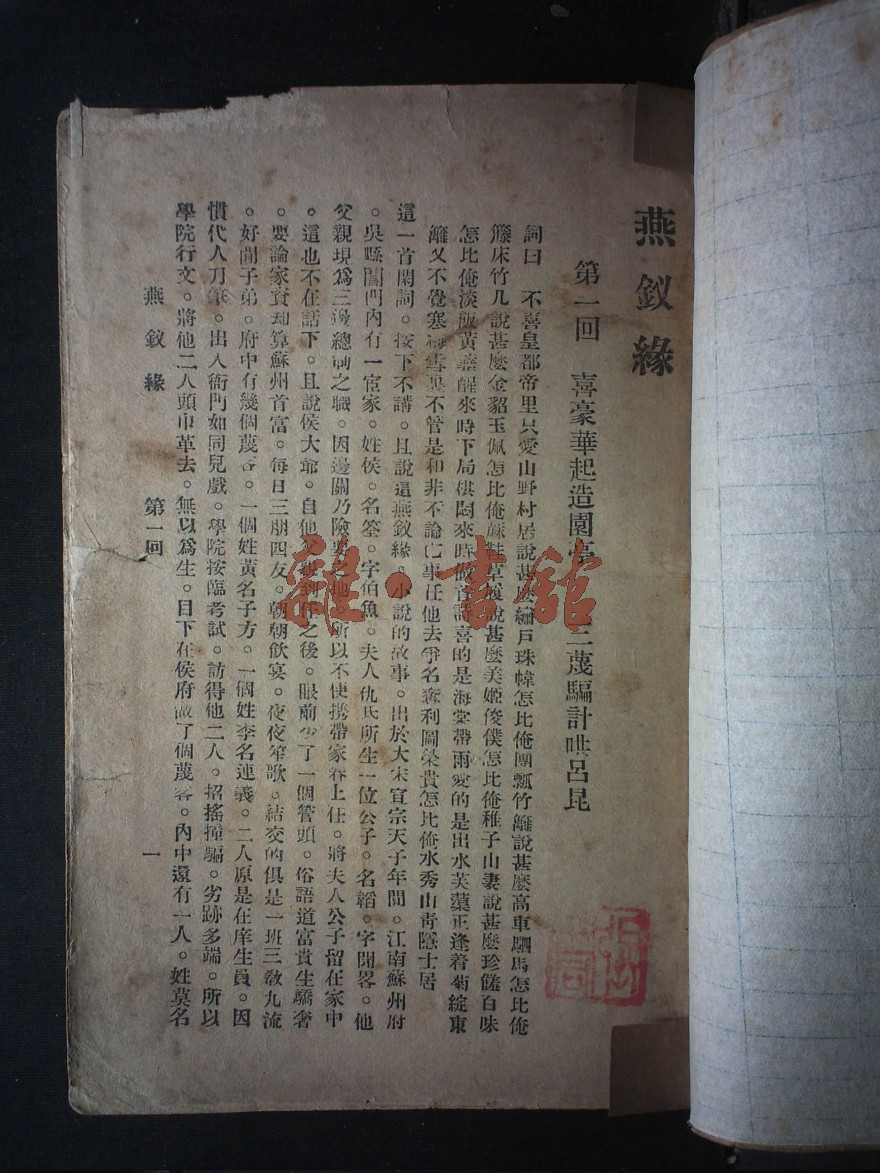 燕釵緣
第一回　喜豪華起造園　三蔑騙計哄呂昆
詞曰　不喜皇都帝里只愛山野村居說甚麼繡戶珠幃怎比俺團瓢竹籬說甚麼高車駟馬怎比俺
籐床竹几說甚麼金貂玉佩怎比俺蔴鞋草履說甚麼美姬俊僕怎比俺稚子山妻說甚麼珍饈百味
怎比俺淡飯黃虀醒來時下局棋悶來時做首詩喜的是海棠帶雨愛的是出水芙蕖正逢着菊綻東
籬又不覺寒梅雪裏不管是和非不論亡事任他去爭名奪利圖榮貴怎比俺水秀山靑隱士居
這一首閑詞。按下不講。且說這燕釵緣。小說的故事。出於大宋宣宗天子年間。江南蘇州府
。吳縣閶門內有一宦家。姓侯。名筌。字伯魚。夫人仇氏所生一位公子。名韜。字聞畧。他
父親現爲三邊總制之職。因邊關乃險要之地。所以不便携帶家眷上任。將夫人公子留在家中
。這也不在話下。且說侯大爺。自他父親到任之後。眼前少了一個管頭。俗語道富貴生驕奢
。要論家資却算蘇州首富。每日三朋四友。朝朝飲宴。夜夜笙歌。結交的俱是一班三敎九流
。好閒子弟。府中有幾個蔑客。一個姓黃名子方。一個姓李名連義。二人原是在庠生員。因
慣代人刀筆。出入衙門如同兒戲。學院按臨考試。訪得他二人。招搖撞騙。劣跡多端。所以
學院行文。將他二人頭巾革去。無以爲生。目下在侯府做了個蔑客。內中還有一人。姓莫名
燕釵緣　第一回　一
雜·書館